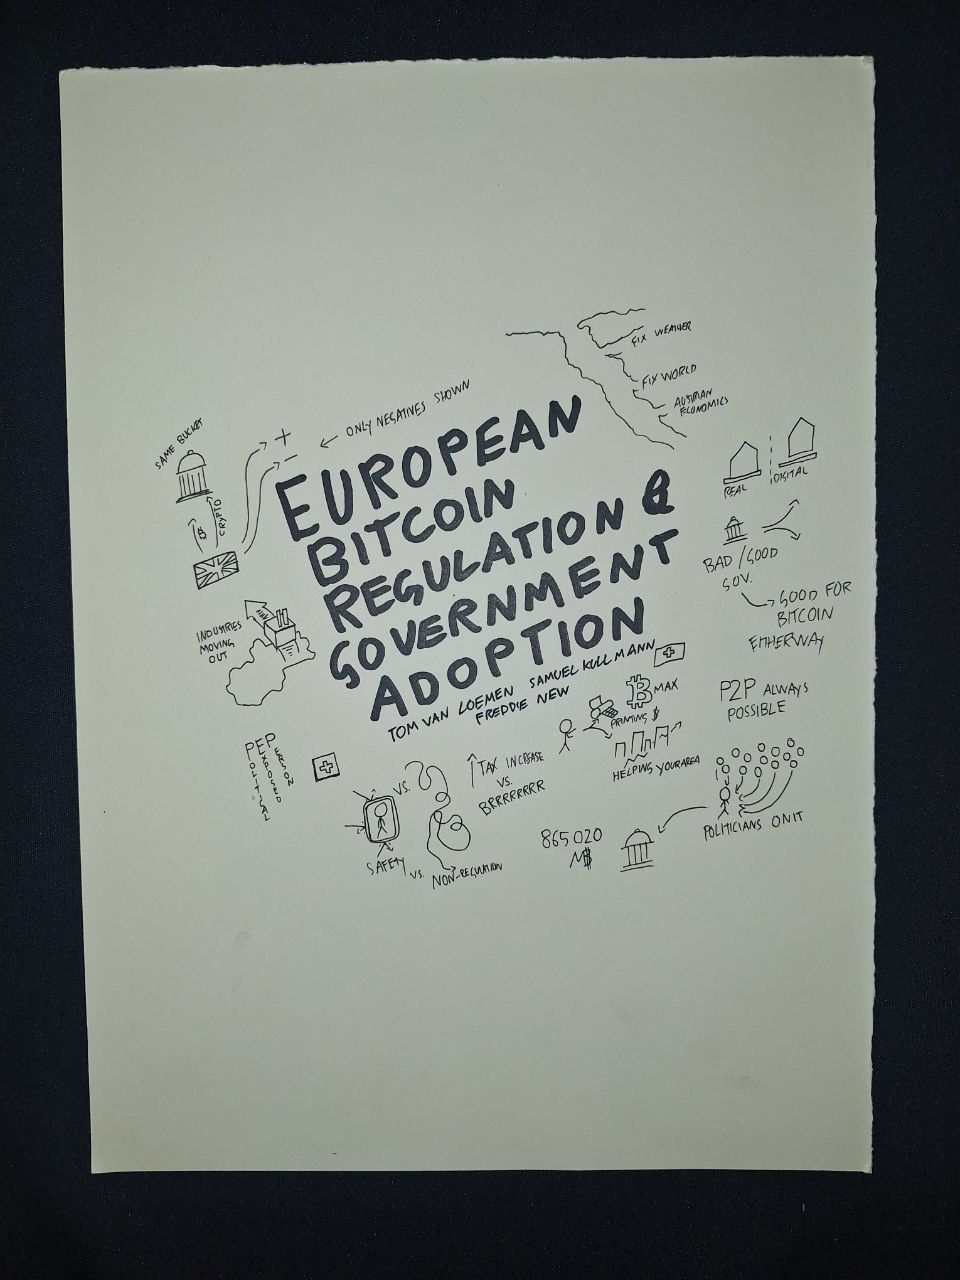 FIX WEATHER
FIX WORLD
AUSTRIAN
ECONOMICS
ONLY NEGATIVES SHOWN
SAME BUCKET
CRYPTO
EUROPEAN
BITCOIN
REGULATION &
GOVERNMENT
ADOPTION
TOM VAN LOEMEN SAMUEL KULLMANN
FREDDIE NEW
REAL
DIGITAL
BAD/GOOD
GOV.
GOOD FOR
BITCOIN
EITHERWAY
INDUSTRIES
MOVING
OUT
₿ MAX
PRINTING $
HELPING YOUR AREA
P2P ALWAYS
POSSIBLE
POLITICAL
EXPOSED
PERSON
VS.
TAX INCREASE
VS.
BRRRRRRR
SAFETY VS. NON-REGULATION
865020
POLITICIANS ON IT